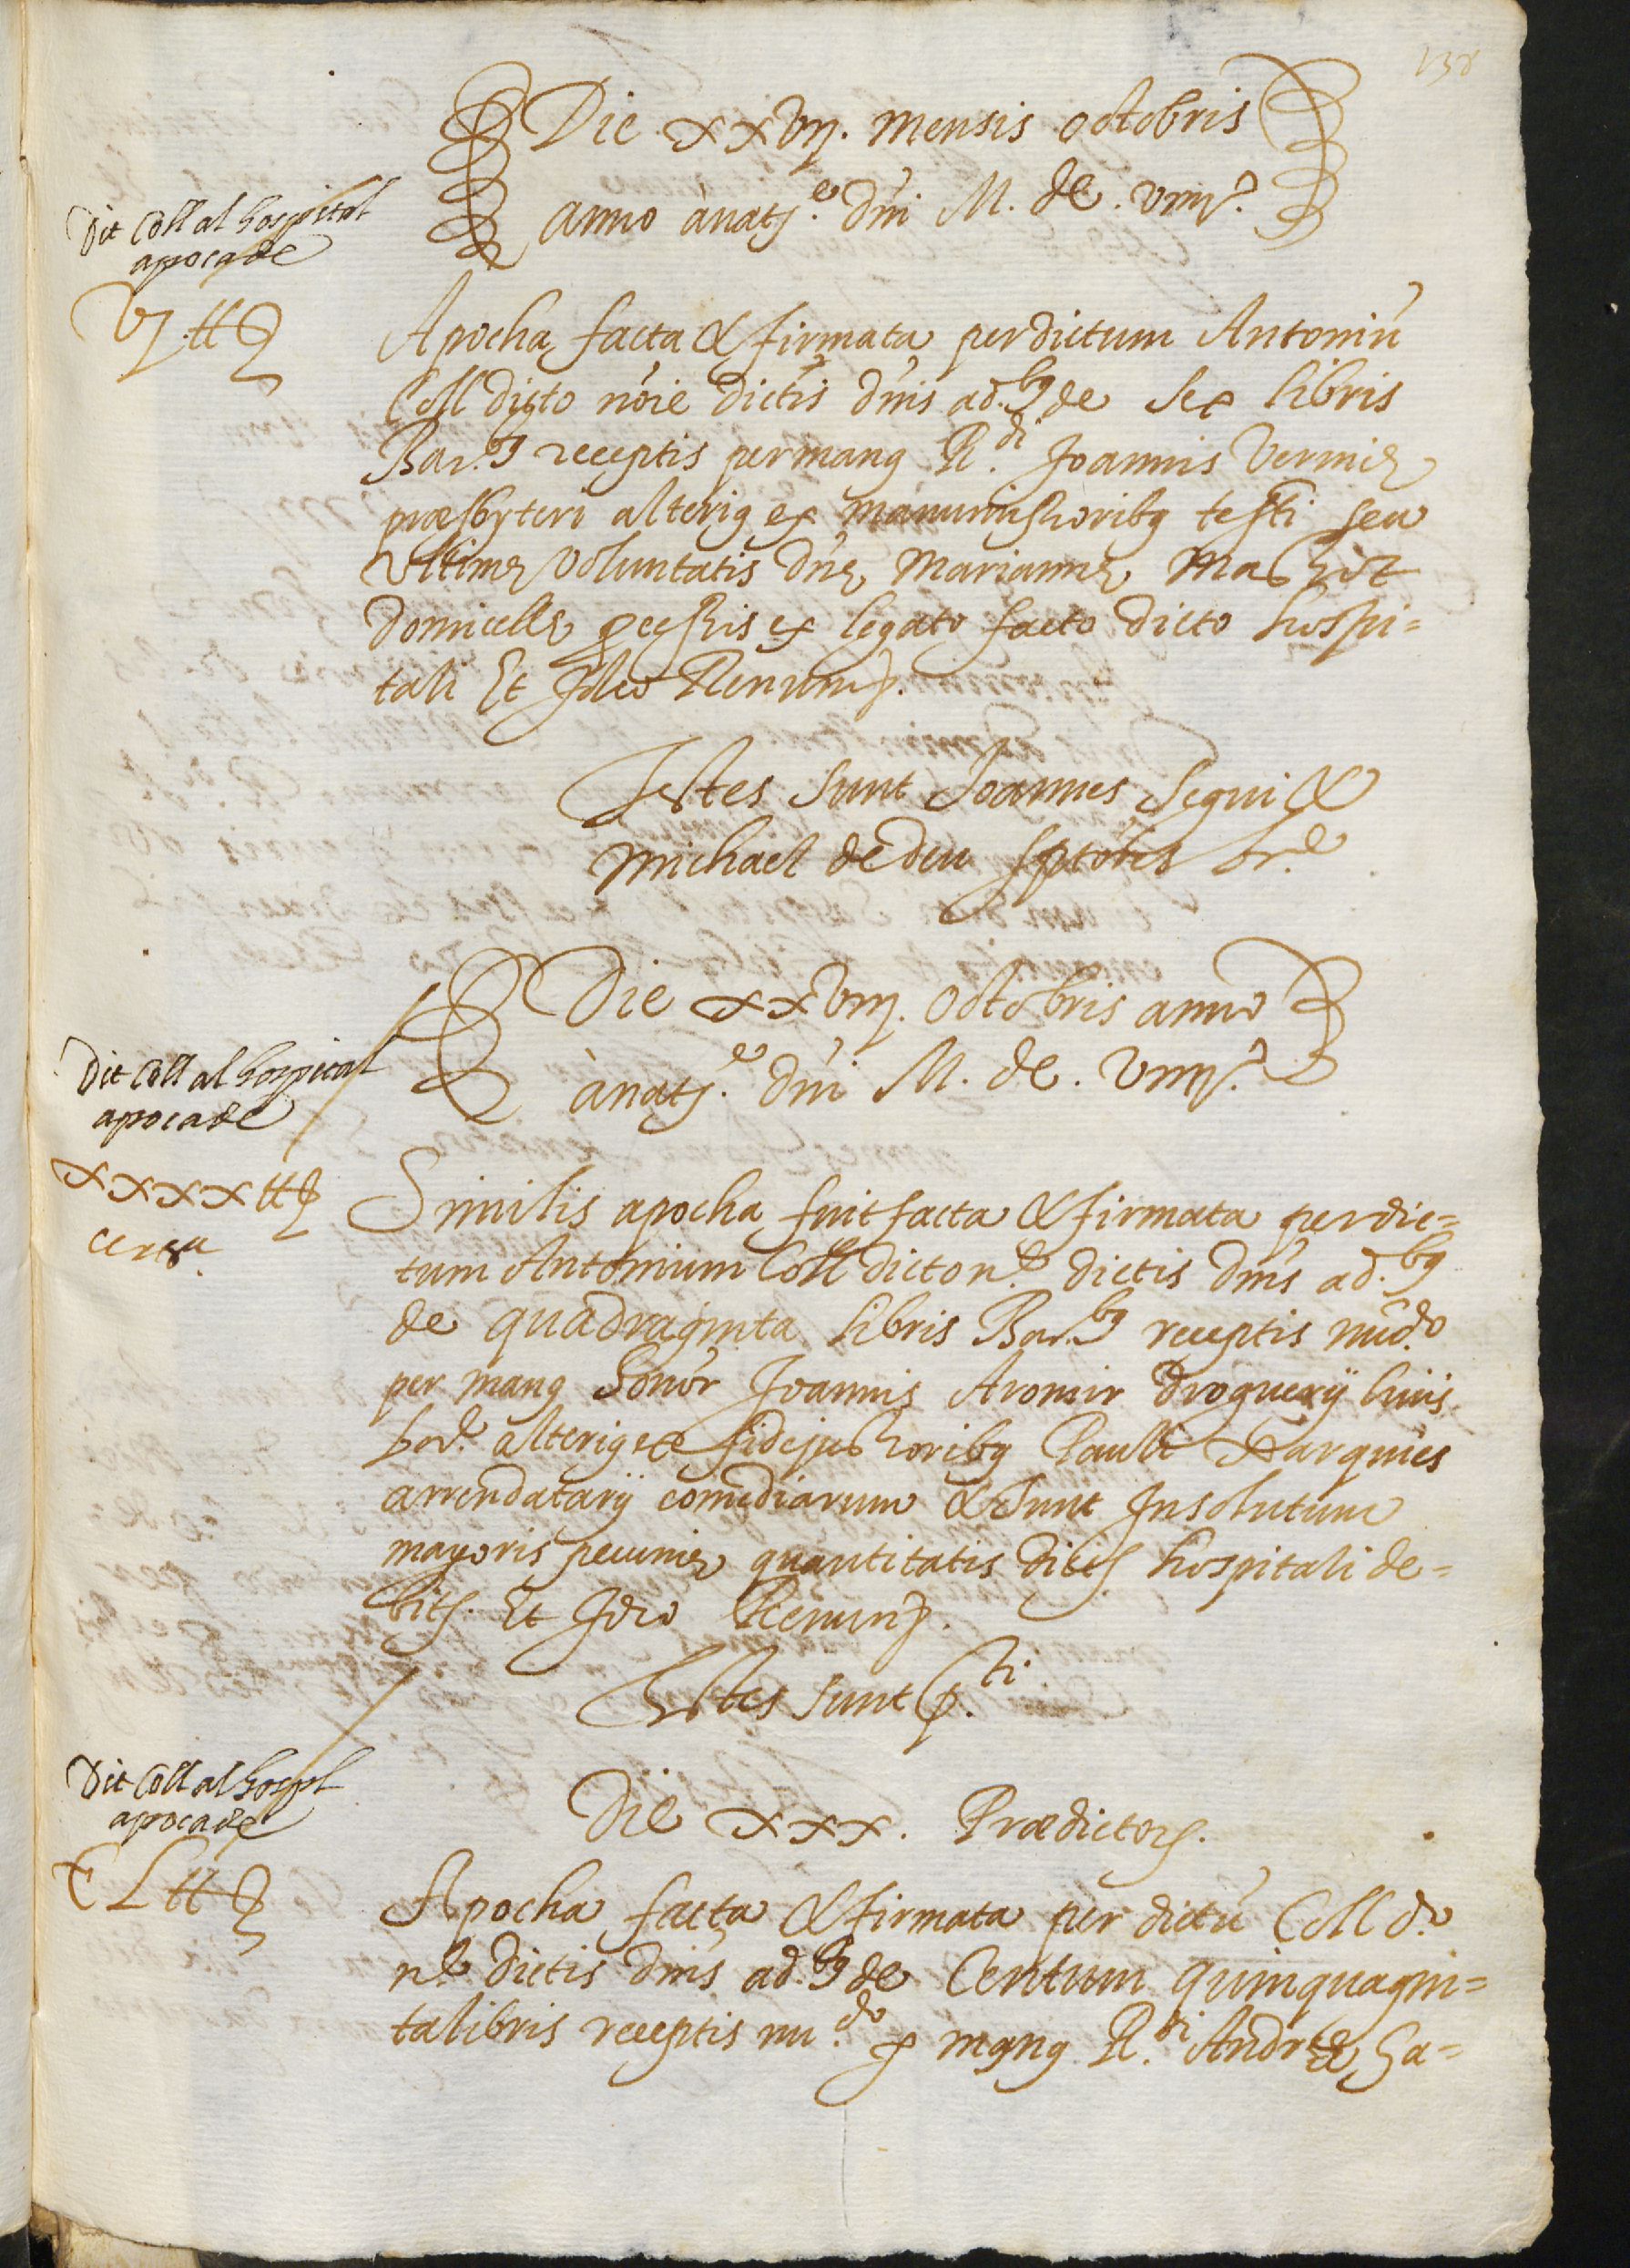 138
Die xxvij. mensis octobris
anno ànat.e dni M. dc. viiij.
Dit Coll al hospital
apoca de
vj ₶
Apocha facta & firmata per dictum Antoniu
Coll dicto noie dictis dnis ad.bus de sex libris
Bar.s receptis per manus R.di Joannis Vermie
præsbyteri alterius ex manumissoribus testi seu
ultime voluntatis dne Marianne
domicelle ex legato facto dicto hospi=
tali Et Ideo Renun.
Testes sunt Joannes Segui &
Michael de deu sptores br.e
Die xxviij. octobris anno
ànat.e dni M. dc. viiij.
Dit Coll al hospital
apoca de
xxxx ₶
Similis apocha fuit facta & firmata per dic=
tum Antonium Coll dicto n.e dictis dnis ad.bus
de quadraginta libris Bar.bus receptis nu.do
per manus honor Joannis Aromir droguerij civis
bar.e alterius ex fidejussoribus Pauli Xarquies
arrendatarij comediarum & sunt In solutum
mayoris pecunie quantitatis dicto hospitali de=
bite. Et Ideo Renun.
Testes sunt p.ti
Dit Coll al hospl
apoca de
CL ₶
Die xxx. Prædictors.
Apocha facta & firmata per dictu Coll d.o
n.e dictis dnis ad.bus de Centum quinquagin=
ta libris receptis nu.do p manus R.di Andree Sa=